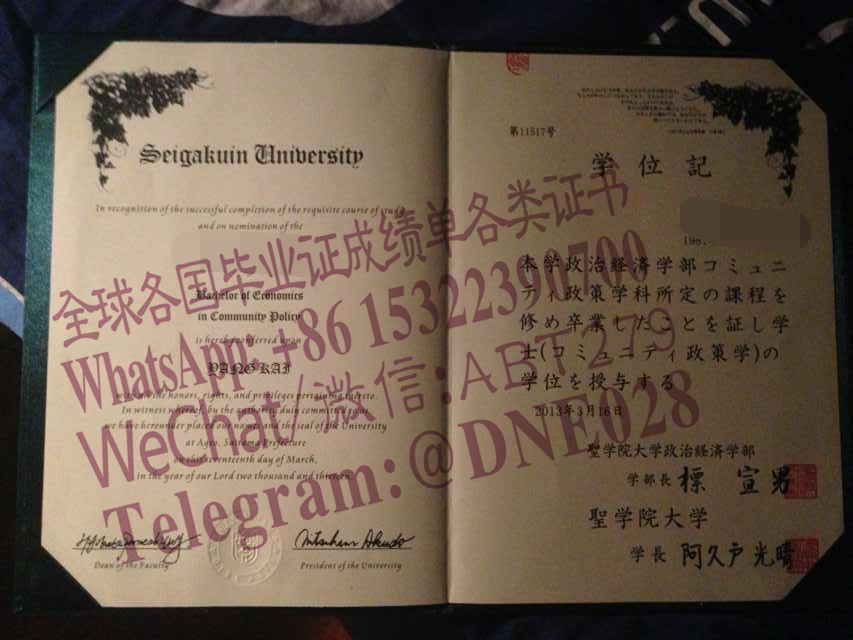 Seigakuin University
In recognition of the successful completion of the requisite course of study
and on nomination of the
Bachelor of Economics
in Community Policy
is hereby conferred upon
YANG KAI
with all the honors, rights, and privileges pertaining thereto.
In witness whereof, by the authority duly committed to us,
we have hereunder placed our names and the seal of the University
at Ageo, Saitama Prefecture
on this seventeenth day of March,
in the year of our Lord two thousand and thirteen.
Dean of the Faculty
President of the University
第11517号
学位記
199
本学政治経済学部コミュニ
ティ政策学科所定の課程を
修め卒業したことを証し学
士(コミュニティ政策学)の
学位を授与する
2013年3月16日
聖学院大学政治経済学部
学部長 標 宣男
聖学院大学
学長 阿久戸光晴
全球各国毕业证成绩单各类证书
WhatsApp:+86 15322390700
WeChat/微信:ABT279
Telegram:@DNE028